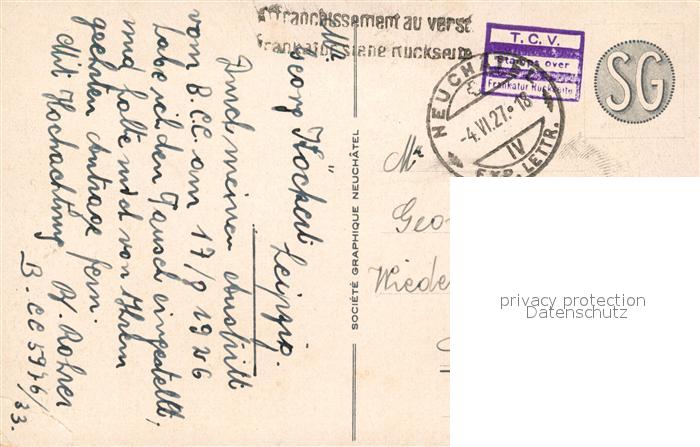 Affranchissement au verst
Frankatur siehe Rückseite
T. C. V.
Stamps over
Frankatur Rückseite
NEUCHÂTEL
-4.VI.27.-18
IV
EXP. LETTR.
SG
Mr
Georg Köckert
Leipzig.
Durch meinen Austritt
vom B.C.C. am 17/9 1926
habe ich den Tausch eingestellt,
und halte mich von Ihrem
geehrten Antrage fern.
Mit Hochachtung W. Rohrer
B.CC 5976/33.
SOCIÉTÉ GRAPHIQUE NEUCHÂTEL
Mr
Geo
Wiede
privacy protection
Datenschutz